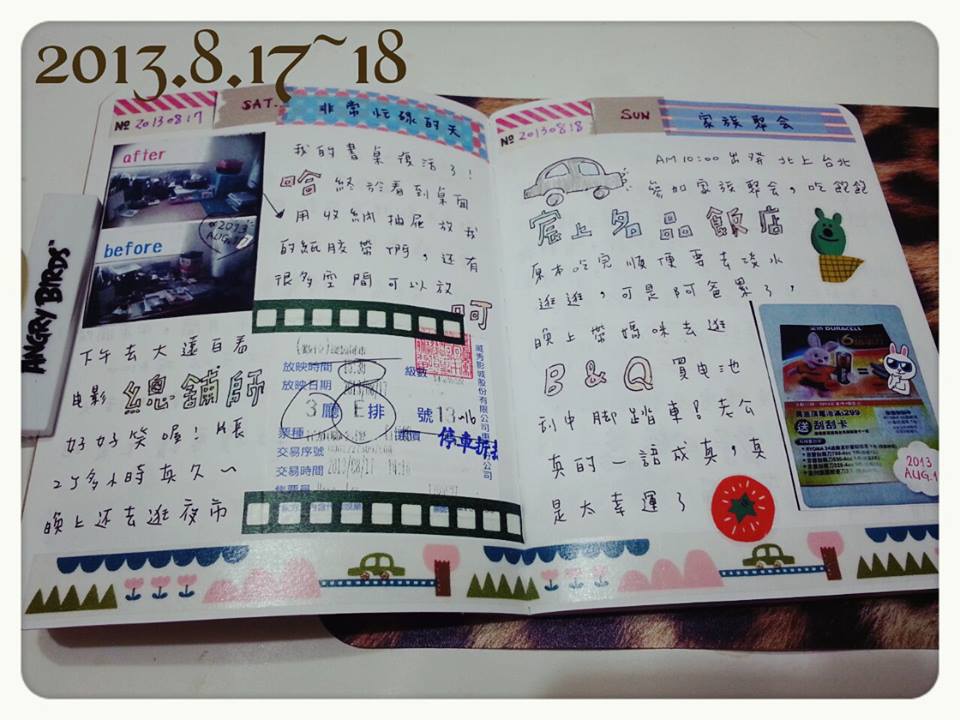 2013.8.17~18
SAT.
非常忙碌的天
№ 20130817
after
before
2013
AUG.
我的書桌復活了!
哈 終於看到桌面
用收納抽屜放我
的紙膠帶們,還有
很多空間可以放
呵
下午去大遠百看
電影 總舖師
好好笑喔!片長
2多小時真久~
晚上還去逛夜市
放映時間
級數
放映日期 2013/08/17
3廳 E排 號 13-16
票種
停車折扣
交易序號
交易時間 2013/08/17
售票員
威秀影城股份有限公司
ANGRY BIRDS
SUN
家族聚會
№ 20130818
AM 10:00 出發 北上台北
參加家族聚會,吃飽飽
宸上名品飯店
原本吃完順便要去淡水
逛逛,可是阿爸累了,
晚上帶媽咪去逛
B & Q 買電池
刮中腳踏車!! 老公
真的一語成真,真
是太幸運了
DURACELL
送 刮刮卡
2013
AUG.1